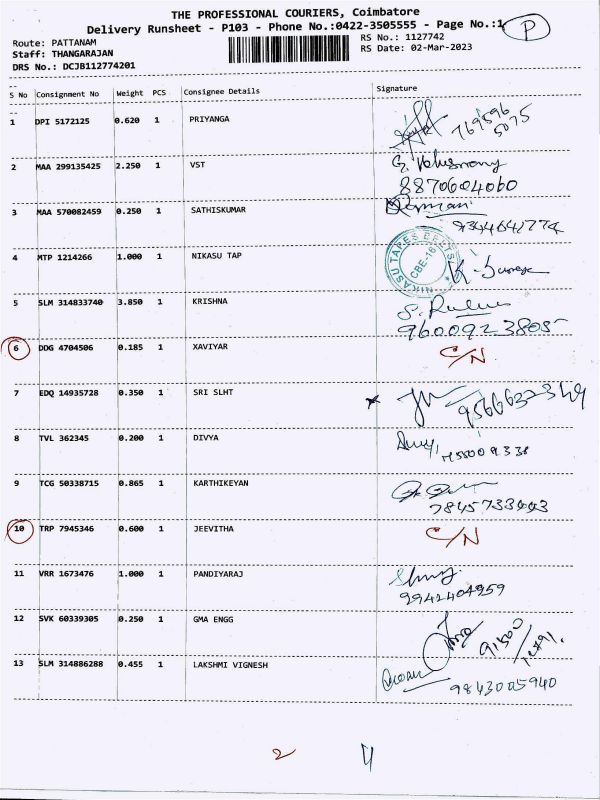 THE PROFESSIONAL COURIERS, Coimbatore
Delivery Runsheet - P103 - Phone No.:0422-3505555 - Page No.:1
P
Route: PATTANAM
RS No.: 1127742
Staff: THANGARAJAN
RS Date: 02-Mar-2023
DRS No.: DCJB112774201
S No Consignment No Weight PCS Consignee Details Signature
1 DPI 5172125 0.620 1 PRIYANGA 769596
5075
2 MAA 299135425 2.250 1 VST
8870604060
3 MAA 570082459 0.250 1 SATHISKUMAR
9344641774
4 MTP 1214266 1.000 1 NIKASU TAP NIKASU TAPES BELTS CBE-16
5 SLM 314833740 3.850 1 KRISHNA
9600923805
6 DDG 4704506 0.185 1 XAVIYAR C/N
7 EDQ 14935728 0.350 1 SRI SLHT
8 TVL 362345 0.200 1 DIVYA
9 TCG 50338715 0.865 1 KARTHIKEYAN
10 TRP 7945346 0.600 1 JEEVITHA C/N
11 VRR 1673476 1.000 1 PANDIYARAJ
9942404959
12 SVK 60339305 0.250 1 GMA ENGG
13 SLM 314886288 0.455 1 LAKSHMI VIGNESH
9843005940
2